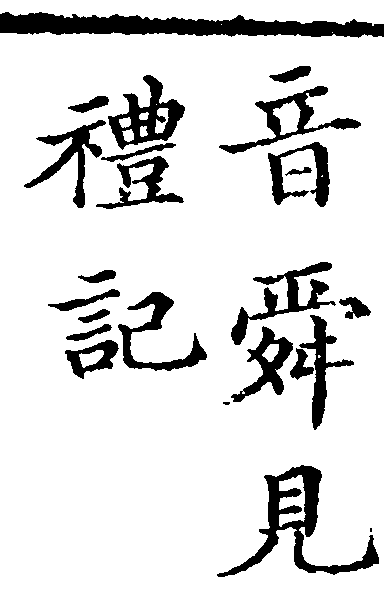 音舜見
禮記